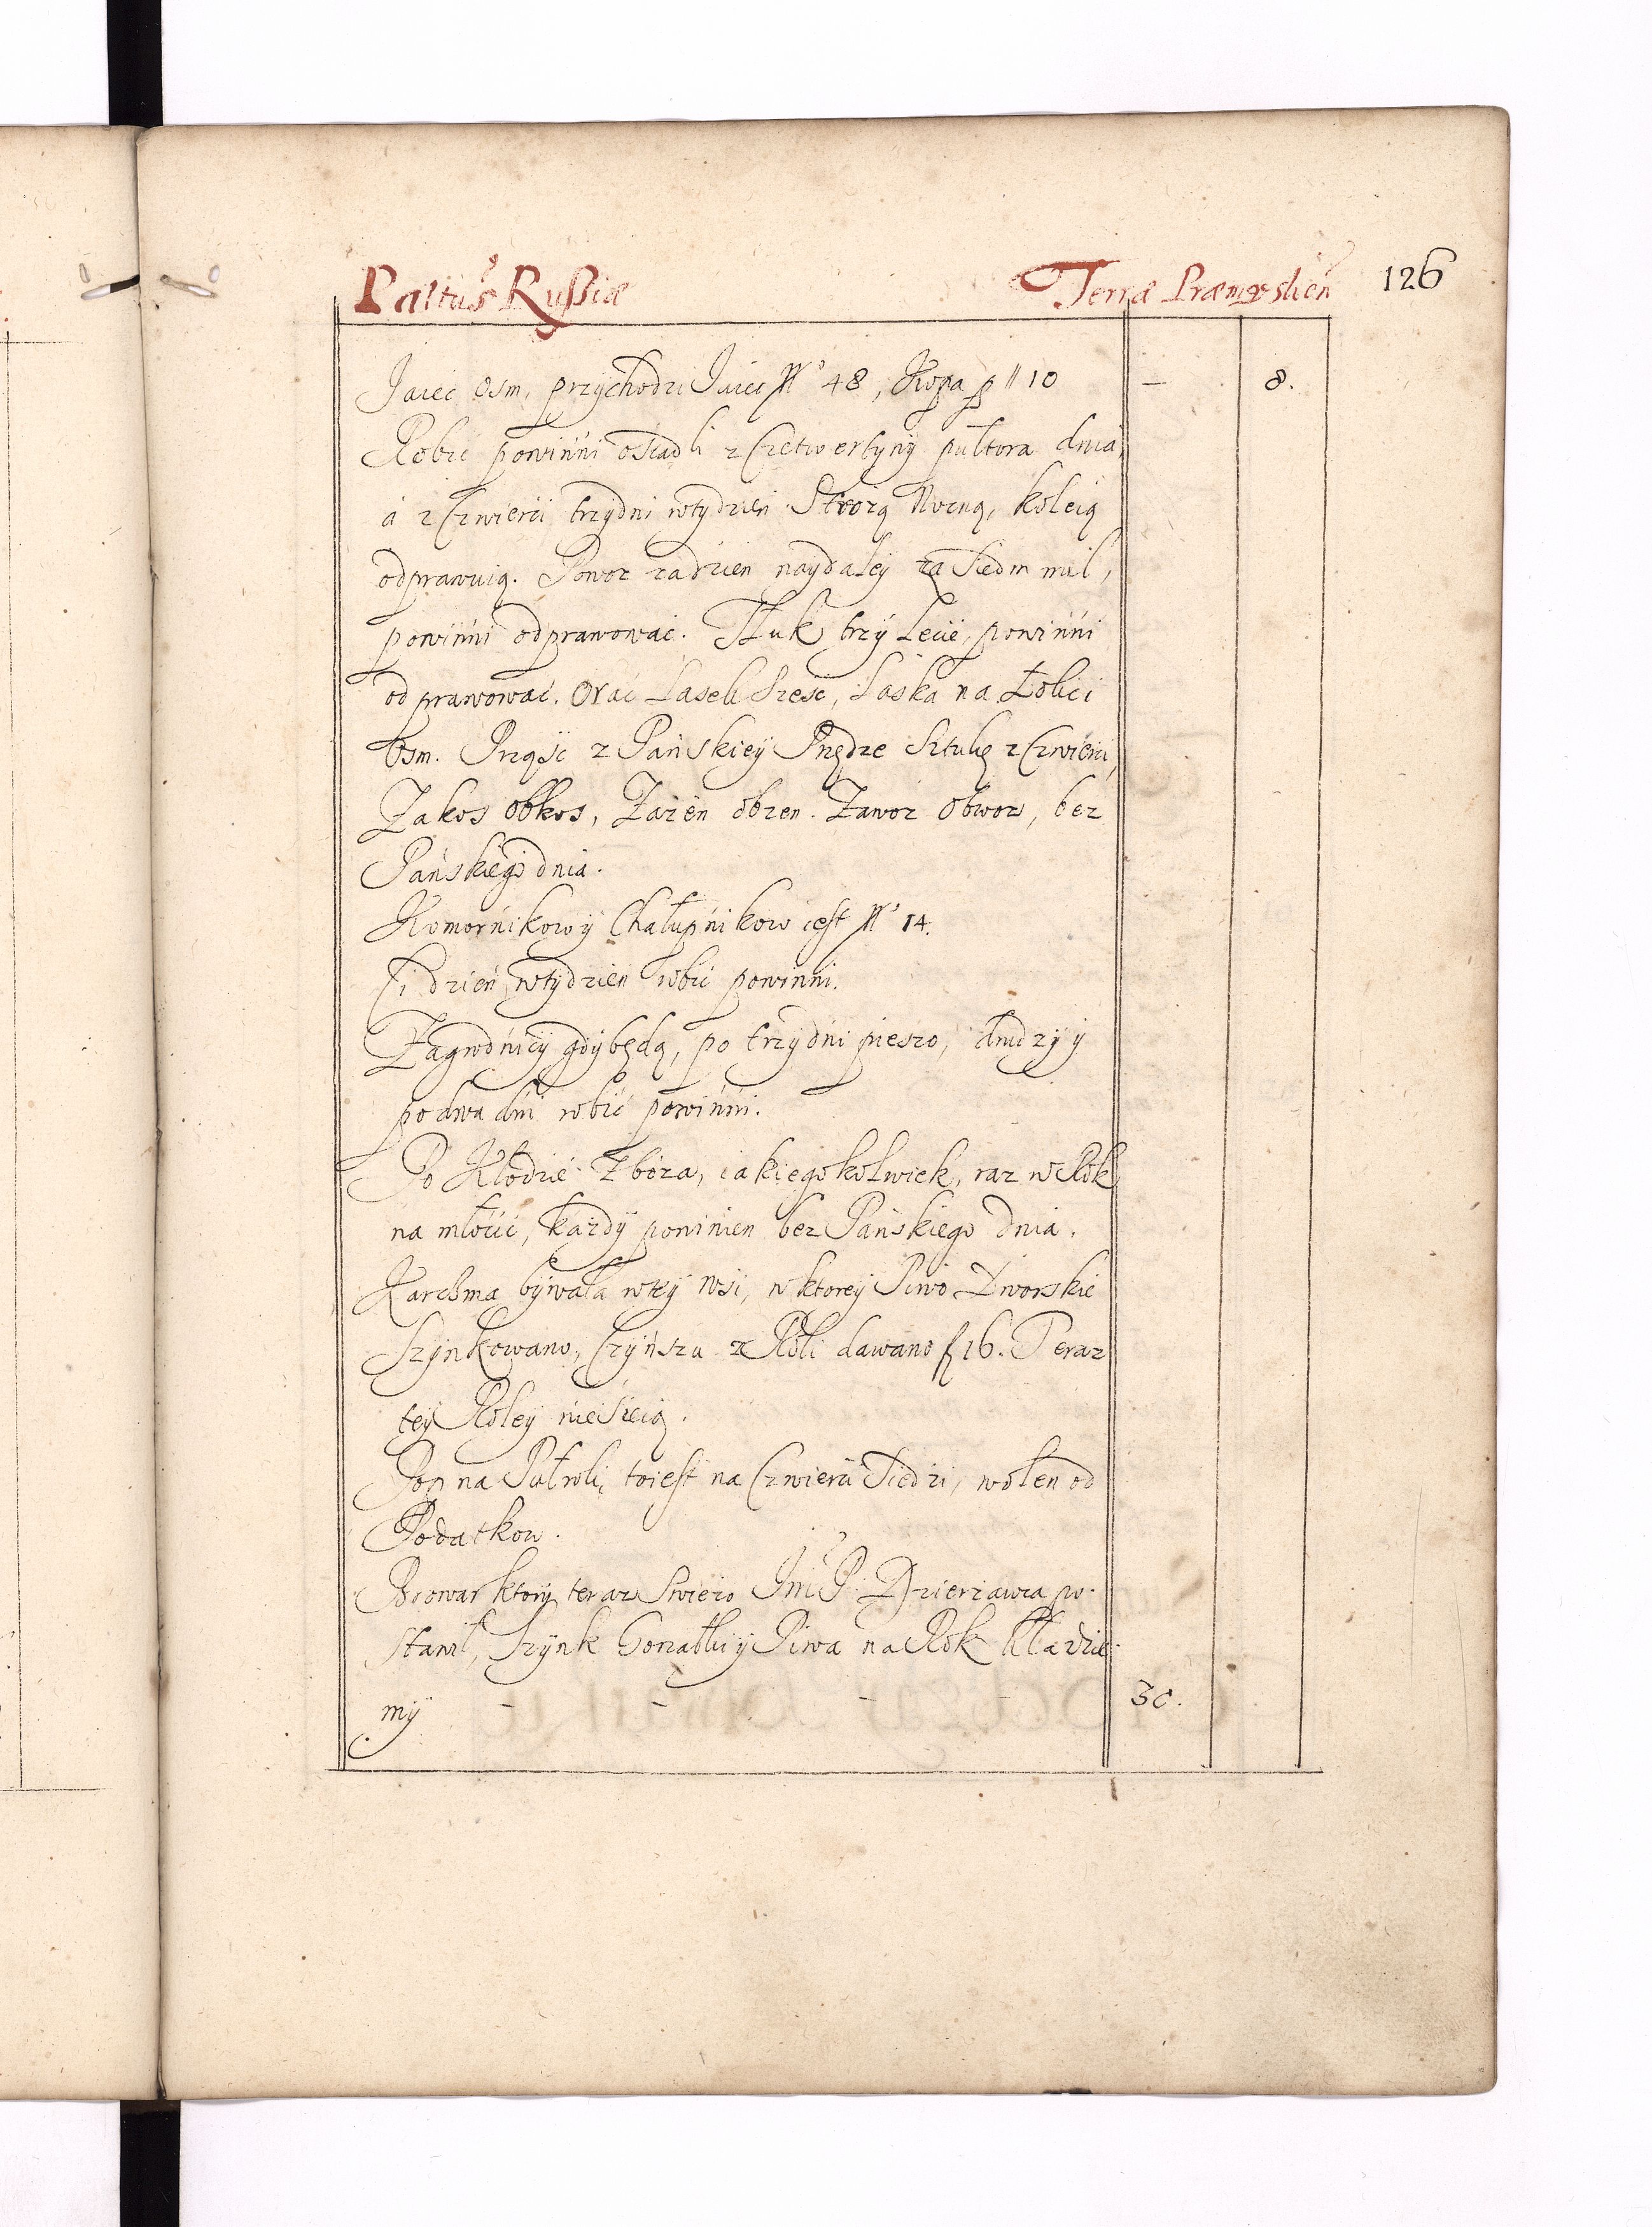 Paltus Russiæ Terræ Præmysliens 126
Jaiec Osm, przychodzi Jaiec No 48, Kopa p 10 — 8.
Robic powinni osiadli z Czetwertyny pultora dnia,
á z Czwierci trzy dni w tydzien Strozą Nocną, koleią
odprawuią. Powoz zadzien naydaley za Siedm mil,
powinni odprawować. Tłuk trzy Lecie, powinni
odprawować. Orać Lasek Szesc, Laska na Łokci
Osm. Prząść z Panskiey Przędze Sztukę z Czwierci,
Zakos obkos, Zazen obzen. Zawoz Obwoz, bez
Pańskiego dnia.
Komornikow y Chałupnikow iest No 14.
Ci dzień w tydzien robić powinni.
Zagrodnicy gdy będą, po trzy dni pieszo, drudzy y
po dwa dni robić powinni.
Po Kłodzie Zboza, iakiegokolwiek, raz w Rok
na młócić, kazdy powinien bez Pańskiego dnia.
Karczma bywała w tey Wsi, w ktorey Piwo Dworskie
Szynkowano, Czynszu z Roli dawano f 16. Teraz
tey Roley nie Sieią.
Pop na Pulroli toiest na Czwierci Siedzi, wolen od
Podatkow.
Browar ktory teraz Swiezo Jm P. Dzierzawca po-
stawił, Szynk Gorzałki y Piwa na Rok kładzie-
my - - - - 30.